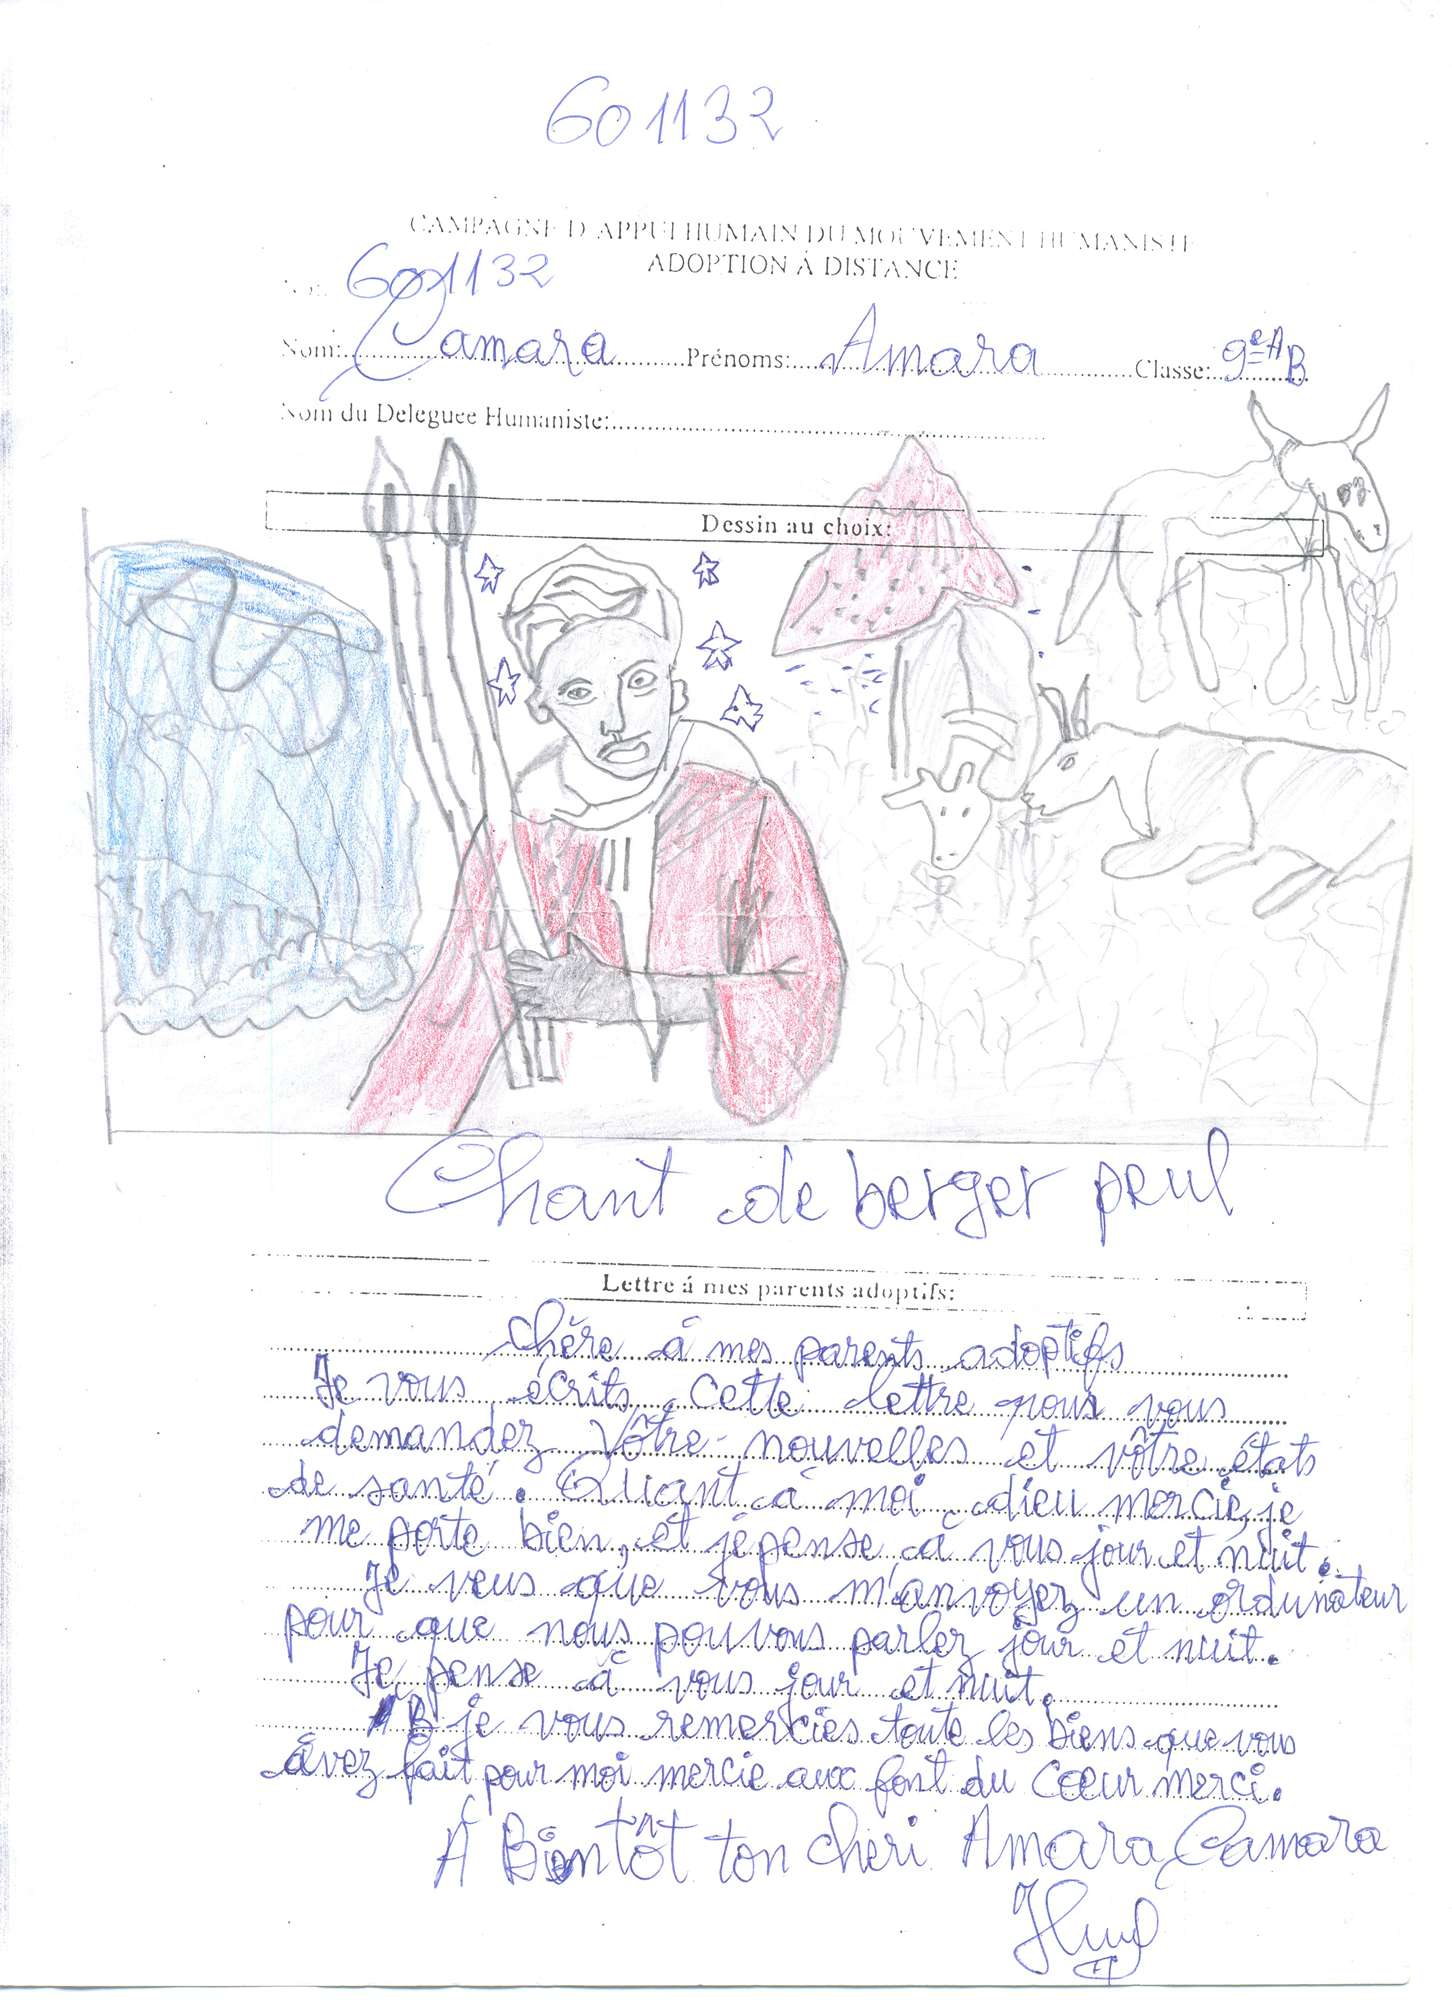 601132
CAMPAGNE D'APPUI HUMAIN DU MOUVEMENT HUMANISTE
ADOPTION À DISTANCE
601132
Nom: Camara Prénoms: Amara Classe: 9e A B
Nom du Deleguee Humaniste:
Dessin au choix:
Chant de berger peul
Lettre á mes parents adoptifs:
chère à mes parents adoptifs
Je vous écrits cette lettre pour vous
demandez vôtre nouvelles et vôtre états
de santé. Quant à moi dieu mercie, je
me porte bien, et jépense à vous jour et nuit.
Je veus que vous m'anvoyez un ordunateur
pour que nous pouvons parlez jour et nuit.
Je pense à vous jour et nuit.
B je vous remercies toute les biens que vous
àvez fait pour moi mercie aux font du Cœur merci.
À Bientôt ton cheri Amara Camara